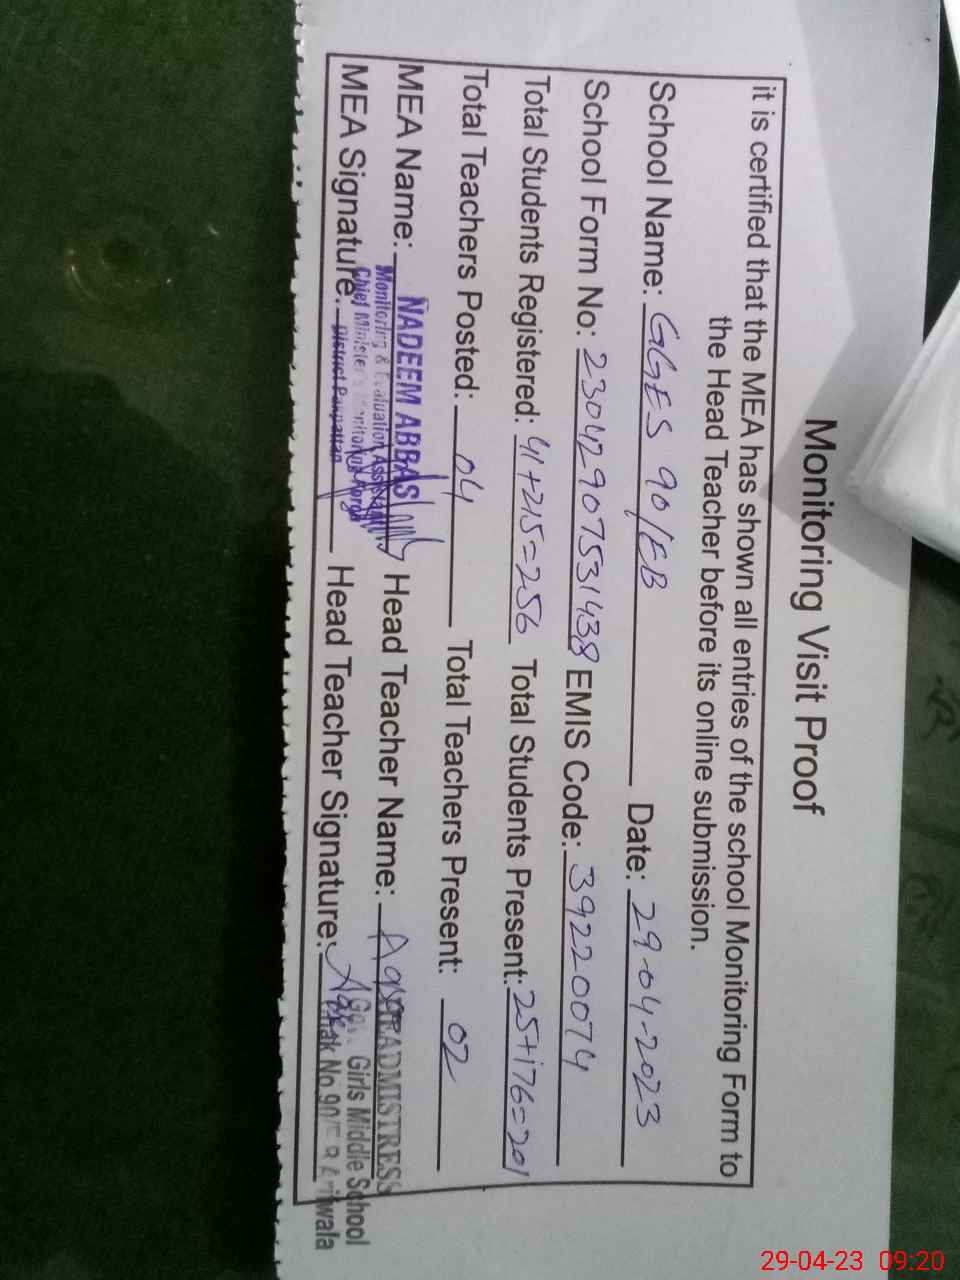 Monitoring Visit Proof
it is certified that the MEA has shown all entries of the school Monitoring Form to
the Head Teacher before its online submission.
School Name: GGES 90/EB Date: 29-04-2023
School Form No: 23042907531438 EMIS Code: 39220074
Total Students Registered: 41+215=256 Total Students Present: 25+176=201
Total Teachers Posted: 04 Total Teachers Present: 02
MEA Name: NADEEM ABBAS Head Teacher Name:
Monitoring & Evaluation Assistant
Chief Minister's Monitoring Force
District Pakpattan
MEA Signature. Head Teacher Signature:
Girls Middle School
Chak No 90/E B Arifwala
29-04-23 09:20